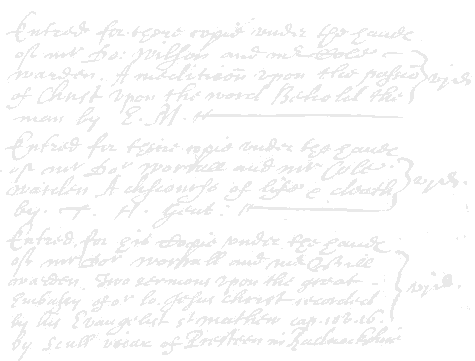 Entred for there copie under the hande
of mr Do: Willson and mr Cole
warden. A meditacion upon the passio vjd.
of Christ upon the word Behold the
man by E. M.
Entred for their copie under the hande
of mr Dor worrall and mr Cole
warden A discourse of life & death vjd.
by. H. Gent.
Entred for his Copie under the hande
of mr Dor worrall and mr Bill
warden. Two sermons upon the great
Embassy of or lo. Jesus Christ recorded vjd.
by his Evangelist St mathew cap. 10. &. 16.
by Scull vicar of in